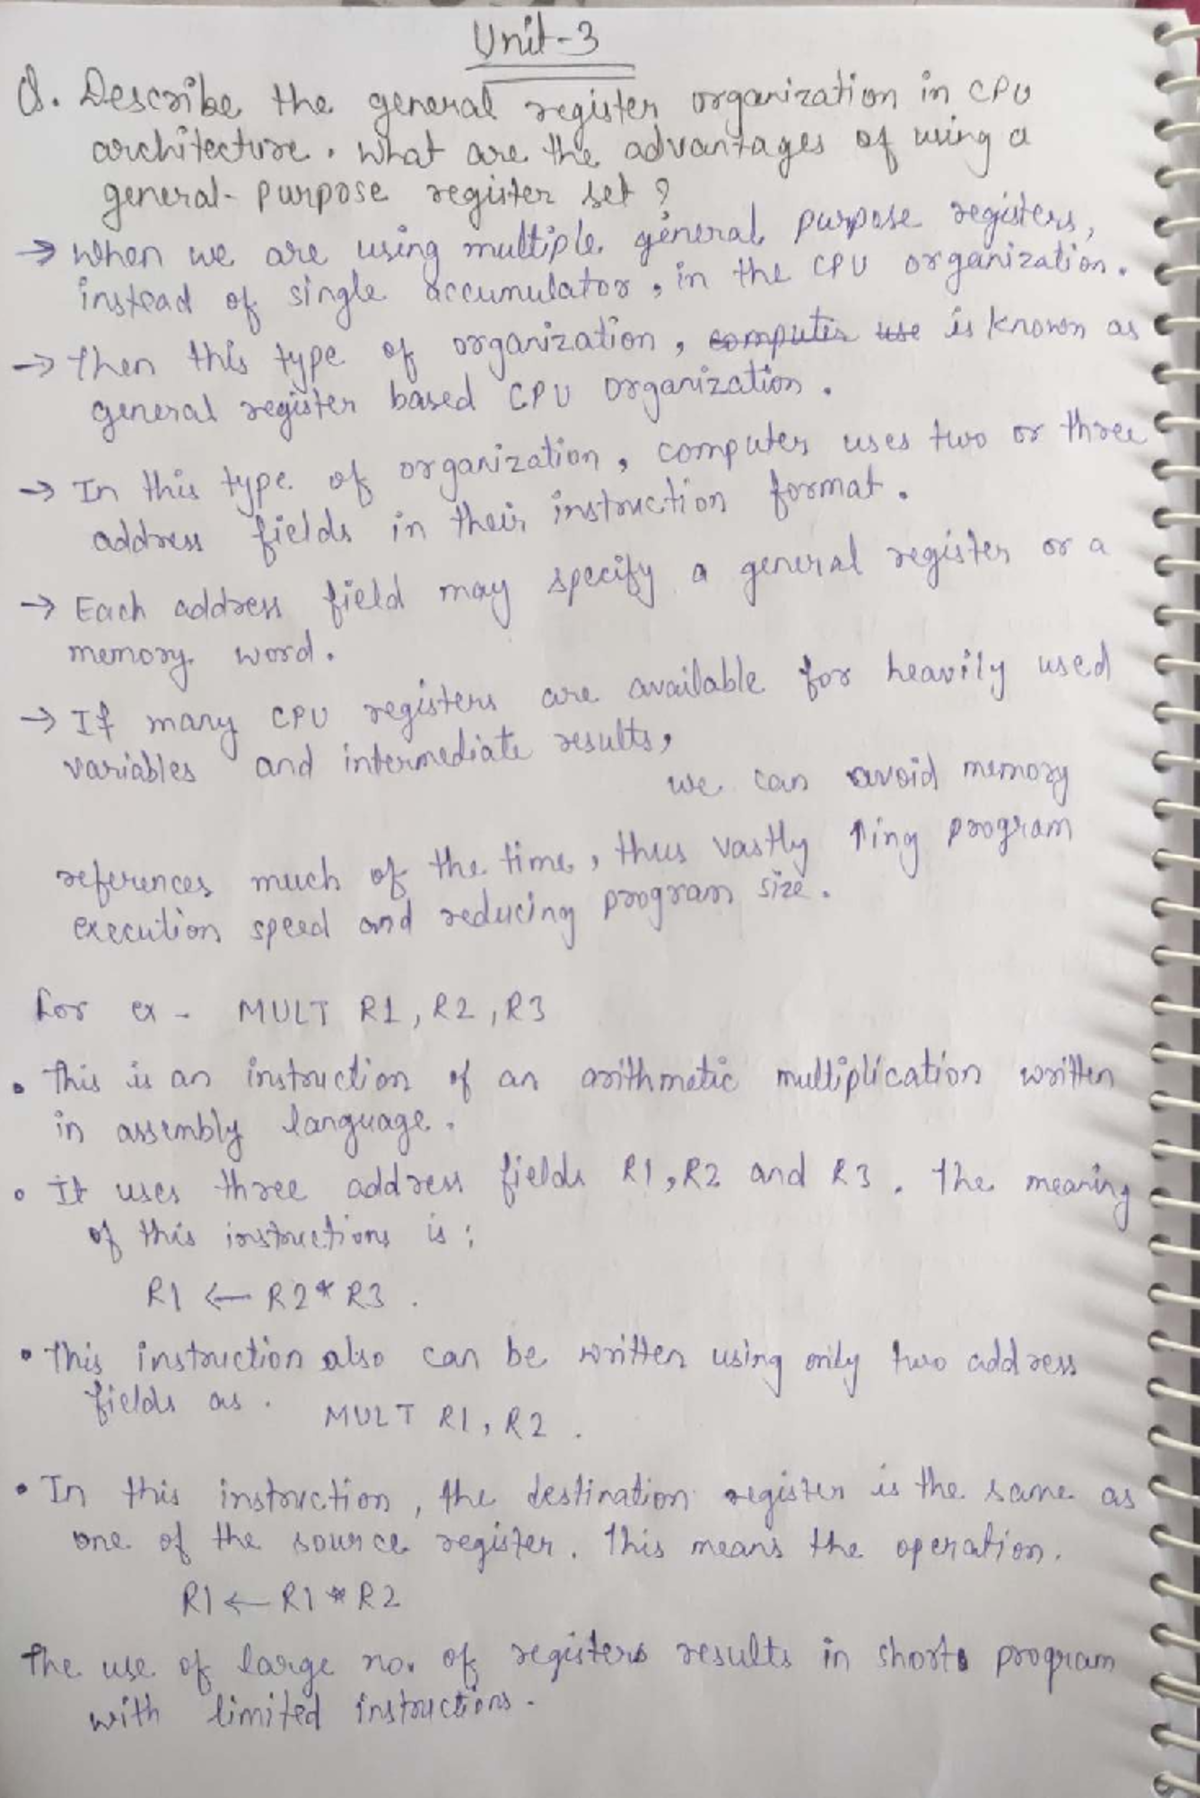 Unit-3
Q. Describe the general register organization in CPU
architecture. what are the advantages of using a
general-purpose register set?
→ When we are using multiple general purpose registers,
instead of single accumulator, in the CPU organization.
→ Then this type of organization, computer use is known as
general register based CPU organization.
→ In this type of organization, computer uses two or three
address fields in their instruction format.
→ Each address field may specify a general register or a
memory word.
→ If many CPU registers are available for heavily used
variables and intermediate results,
we can avoid memory
references much of the time, thus vastly ↑ing program
execution speed and reducing program size.
for ex - MULT R1, R2, R3
• This is an instruction of an arithmetic multiplication written
in assembly language.
• It uses three address fields R1, R2 and R3. The meaning
of this instructions is:
R1 ← R2 * R3.
• This instruction also can be written using only two address
fields as.
MULT R1, R2.
• In this instruction, the destination register is the same as
one of the source register. This means the operation.
R1 ← R1 * R2
The use of large no. of registers results in short program
with limited instructions.